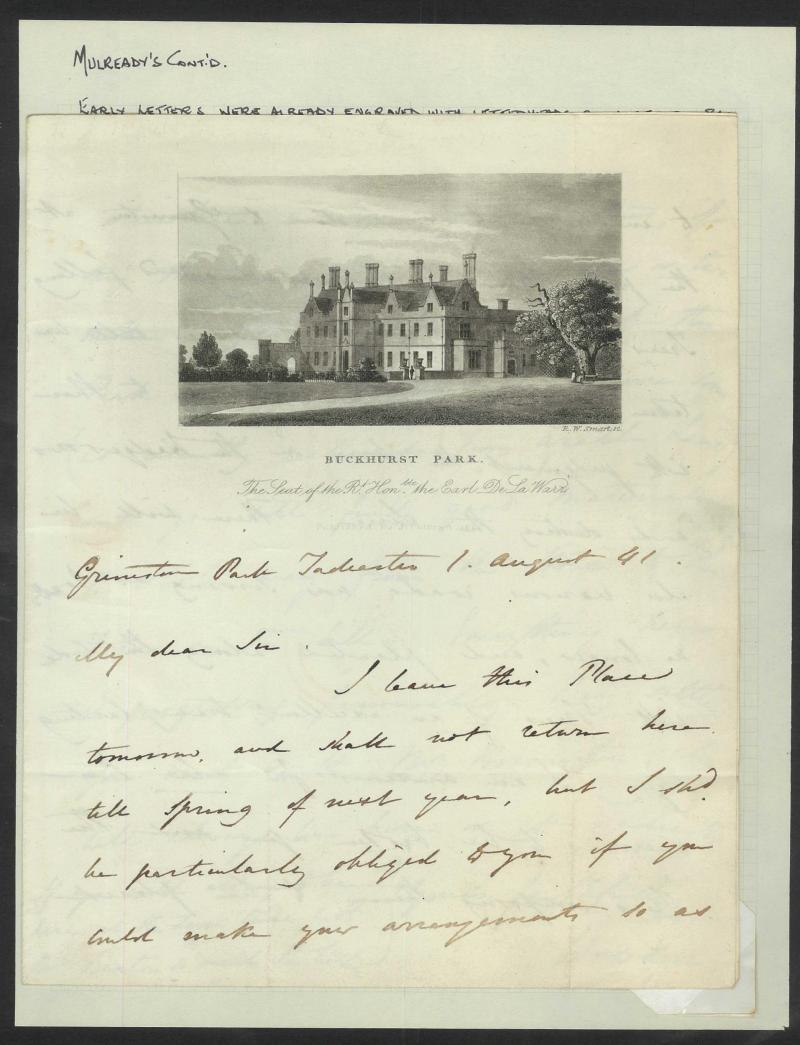 MULREADY'S CONT'D.
EARLY LETTERS WERE ALREADY ENGRAVED WITH
R. W. Smart, sc.
BUCKHURST PARK.
The Seat of the Rt. Hon.ble the Earl De La Warr
Grimston Park Tadcaster 1. August 41.
My dear Sir.
I leave this Place
tomorrow, and shall not return here
till Spring of next year, but I shd.
be particularly obliged to you if you
could make your arrangements so as